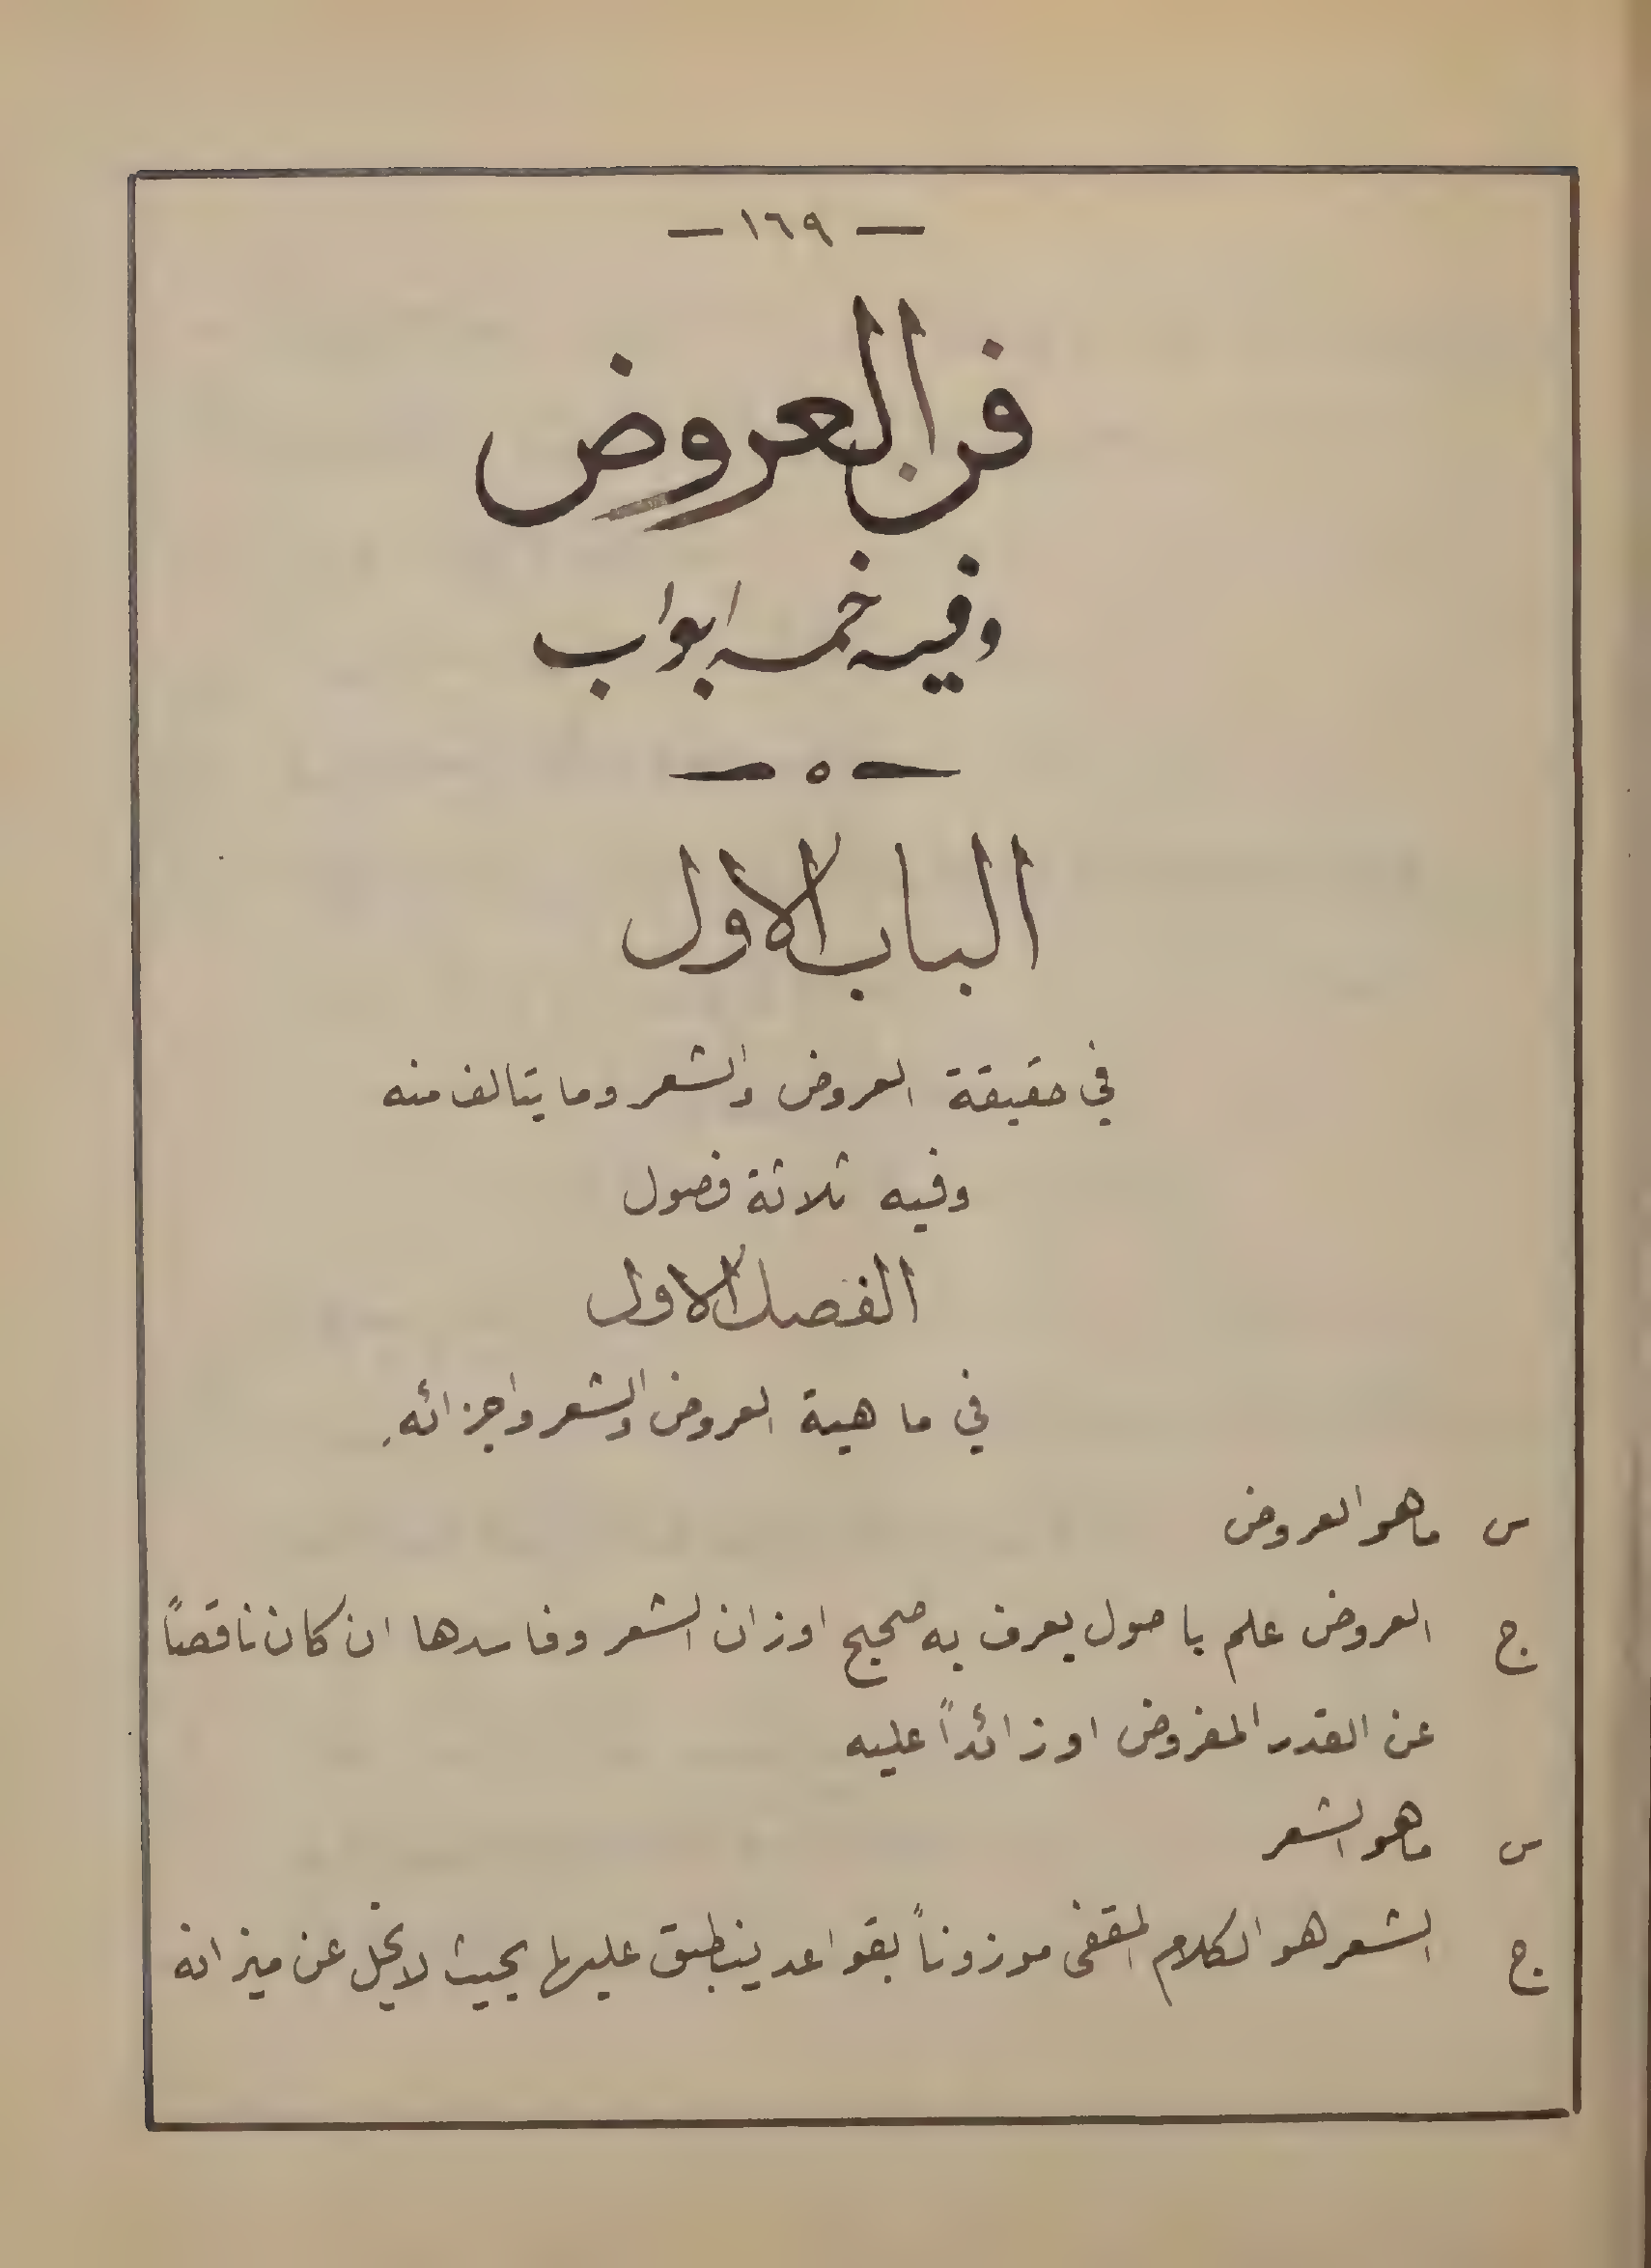 — ١٦٩ —
فن العروض
وفيه خمسه ابواب
الباب الاول
في حقيقة العروض والشعر وما يتالف منه
وفيه ثلاثة فصول
الفصل الاول
في ما هية العروض والشعر واجزائه
س ما هو العروض
ج العروض علم با صول يعرف به صحيح اوزان الشعر وفاسدها ان كان ناقصاً
عن القدر المفروض او زائداً عليه
س ما هو الشعر
ج الشعر هو الكلام المقفى موزوناً بقواعد ينطبق عليها بحيث لا يخل عن ميزانه